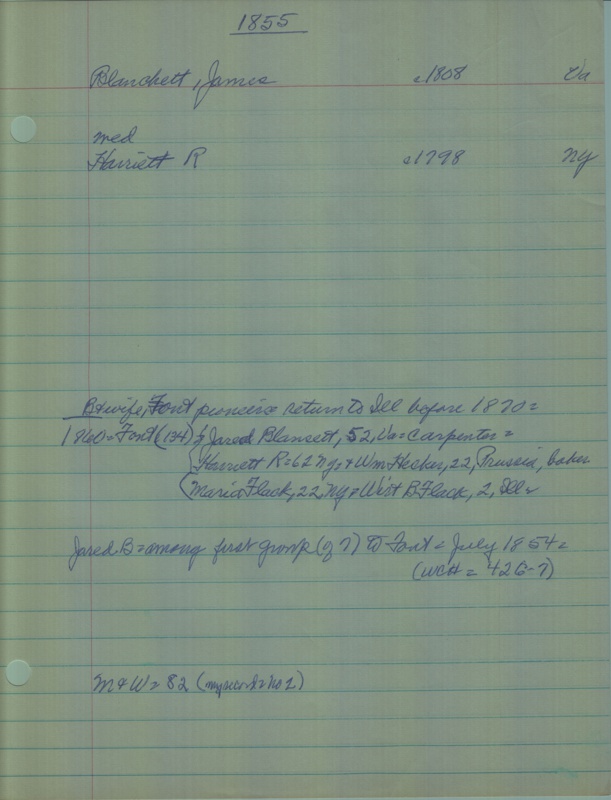 1855
Blanchett, James c1808 Va
med
Harriett R c1798 Ny
B+wife, Font pioneers return to Ill before 1870=
1860=Font (134) Jared Blansett, 52, Va=Carpenter=
Harriett R=62 Ny=+Wm Hecker, 22, Prussia, baker
Maria Flack, 22, Ny+West B Flack, 2, Ill
Jared B=among first group (of 7) to Font=July 1854=
(WCH=426-7)
M+W=82 (my record=No 1)